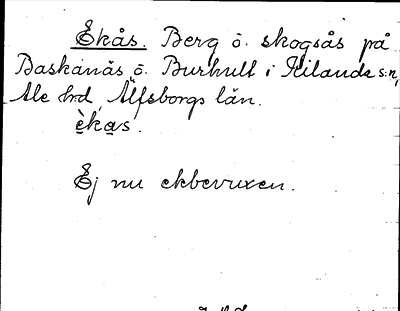 Ekås. Berg o. skogsås på
Baskanäs o. Burhult i Kilanda s:n,
Ale hrd, Älfsborgs län.
èkas.
Ej nu ekbevuxen.